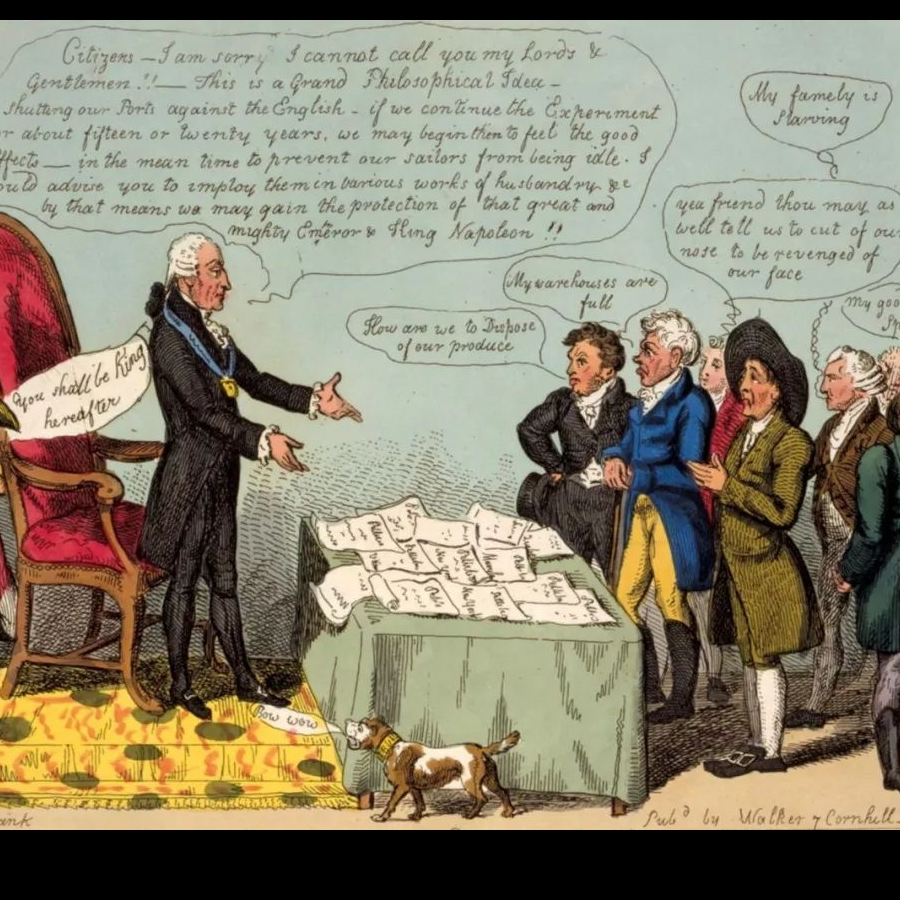 Citizens — I am sorry I cannot call you my Lords &
Gentlemen!! — This is a Grand Philosophical Idea —
shutting our Ports against the English - if we continue the Experiment
r about fifteen or twenty years, we may begin then to feel the good
ffects — in the mean time to prevent our sailors from being idle. I
ould advise you to imploy them in various works of husbandry &c
by that means we may gain the protection of that great and
mighty Emperor & King Napoleon!!
You shall be King
hereafter
How are we to Dispose
of our produce
My warehouses are
full
My famely is
Starving
yea friend thou may as
well tell us to cut of our
nose to be revenged of
our face
My goo
Bow wow
Pub.d by Walker 7 Cornhill